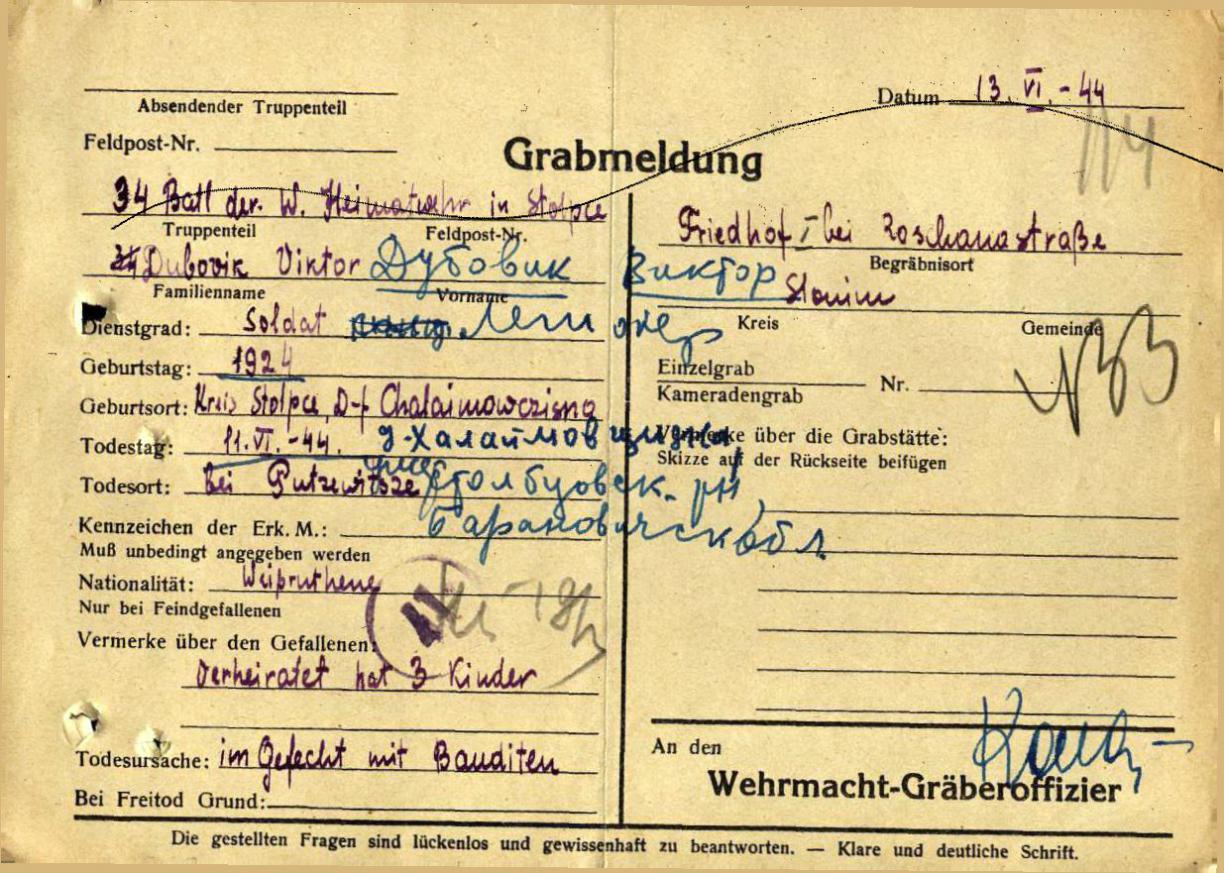 Datum 13. VI. - 44
Absendender Truppenteil
Feldpost-Nr.
Grabmeldung
34 Batl der. W. Heimatwehr in Stolpce
Truppenteil Feldpost-Nr.
Dubovik Viktor Дубовик Виктор
Familienname Vorname
Dienstgrad: Soldat
Geburtstag: 1924
Geburtsort: Kreis Stolpce, D-f Chalaimowczisna
Todestag: 11. VI. - 44. д-Халаймовщизна
Todesort: Bei Столбцовск. рн
Kennzeichen der Erk. M.: Барановичск обл
Muß unbedingt angegeben werden
Nationalität: Weißruthene
Nur bei Feindgefallenen
Vermerke über den Gefallenen:
Verheiratet hat 3 Kinder
Todesursache: im Gefecht mit Banditen
Bei Freitod Grund:
Friedhof I bei Roschanastraße
Begräbnisort
Slonim
Kreis Gemeinde
Einzelgrab
Kameradengrab Nr.
Vermerke über die Grabstätte:
Skizze auf der Rückseite beifügen
An den
Wehrmacht-Gräberoffizier
Die gestellten Fragen sind lückenlos und gewissenhaft zu beantworten. — Klare und deutliche Schrift.